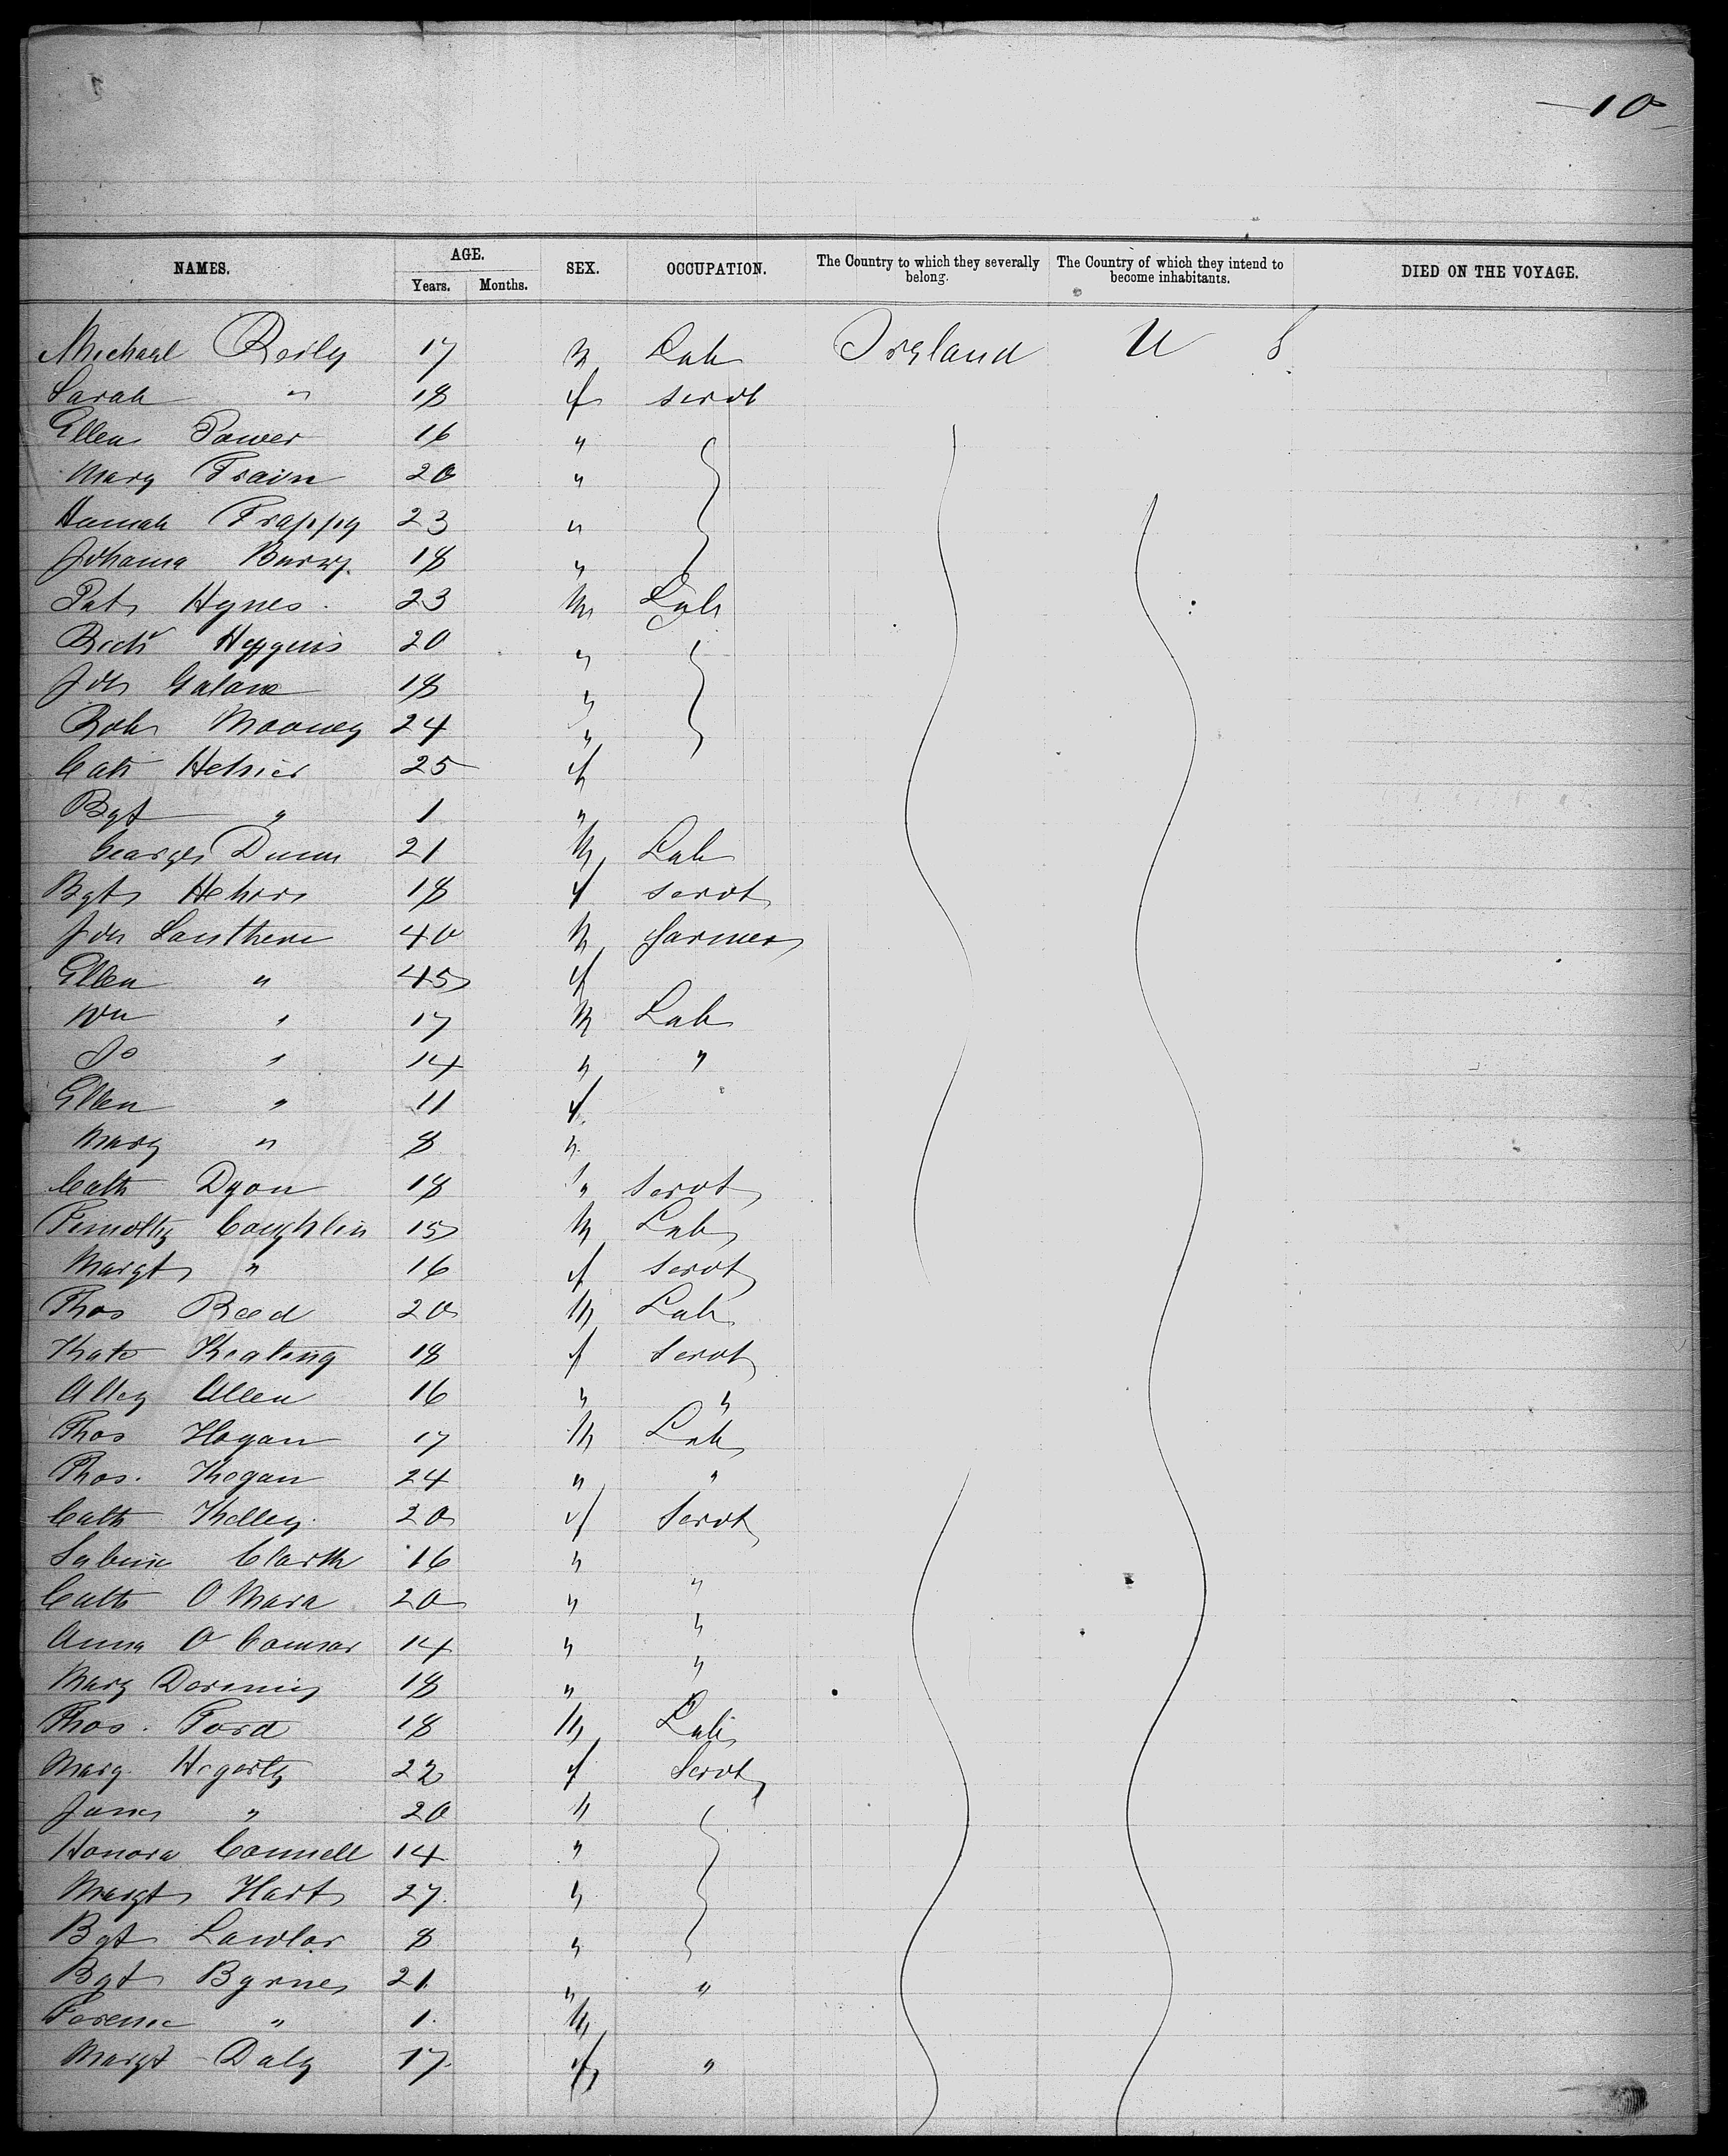 10
NAMES. AGE. SEX. OCCUPATION. The Country to which they severally belong. The Country of which they intend to become inhabitants. DIED ON THE VOYAGE.
Years. Months.
Michael Reily 17 M Lab Ireland U S
Sarah " 18 f servt
Ellen Power 16 "
Mary Train 20 "
Hannah Frappy 23 "
Johanna Barry 18 "
Pat Hynes 23 M Lab
Richd Higgins 20 "
Jon 18 "
Rob Mooney 24 "
Cath 25 f
Bgt " 1 "
Georges Dunn 21 M Lab
Bgt 18 f servt
Jon 40 M farmer
Ellen " 45 f
Wm " 17 M Lab
Jo " 14 " "
Ellen " 11 f
Mary " 8 "
Cath Dyon 18 " servt
Timothy Coughlin 15 M Lab
Margt " 16 f servt
Thos Reed 20 M Lab
Kate Keating 18 f servt
Alley Allen 16 " "
Thos Hogan 17 M Lab
Thos. Kegan 24 " "
Cath Kelley 20 f Servt
Sabina Clark 16 " "
Cath O Mara 20 " "
Anna O Connor 14 " "
Mary 18 " "
Thos. Ford 18 M Lab
Mary Hegarty 22 f Servt
James " 20 "
Honora Connell 14 "
Margt Hart 27 "
Bgt Lawlor 8 "
Bgt Byrne 21 " "
" 1 M
Margt Daly 17 f "